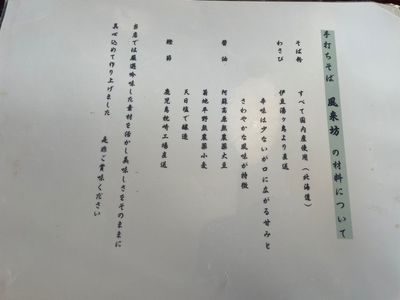 手打ちそば 風来坊 の材料について
そば粉 すべて国内産使用（北海道）
わさび 伊豆湯ヶ島より直送
辛味は少ないが口に広がる甘みと
さわやかな風味が特徴
醤油 阿蘇高原無農薬大豆
菊地平野無農薬小麦
天日塩で醸造
鰹節 鹿児島枕崎工場直送
当店では厳選吟味した素材を活かし美味しさをそのままに
真心込めて作り上げました
是非ご賞味ください